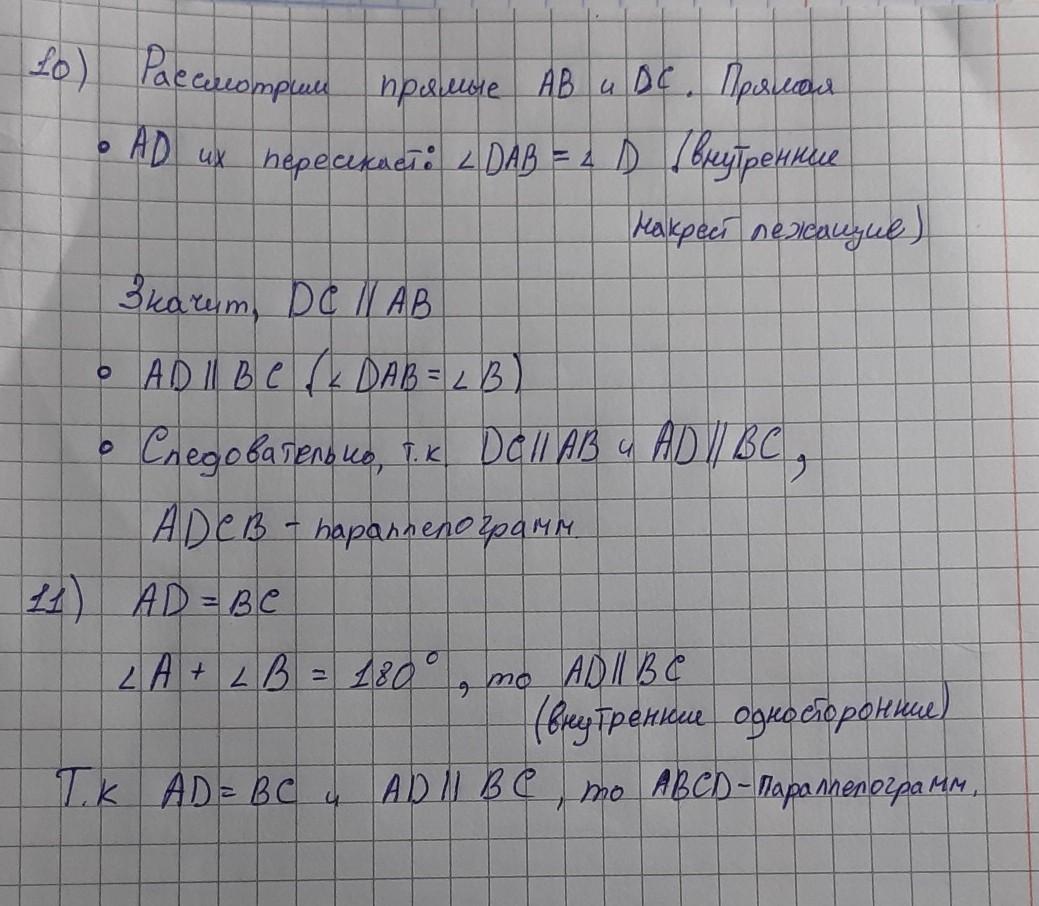 10) Рассмотрим прямые AB и DC. Прямая
• AD их пересекает: ∠DAB = ∠D (внутренние
накрест лежащие)
Значит, DC || AB
• AD || BC (∠DAB = ∠B)
• Следовательно, т.к DC || AB и AD || BC,
ADCB - параллелограмм.
11) AD = BC
∠A + ∠B = 180°, то AD || BC
(внутренние односторонние)
Т.к AD = BC и AD || BC, то ABCD - параллелограмм.